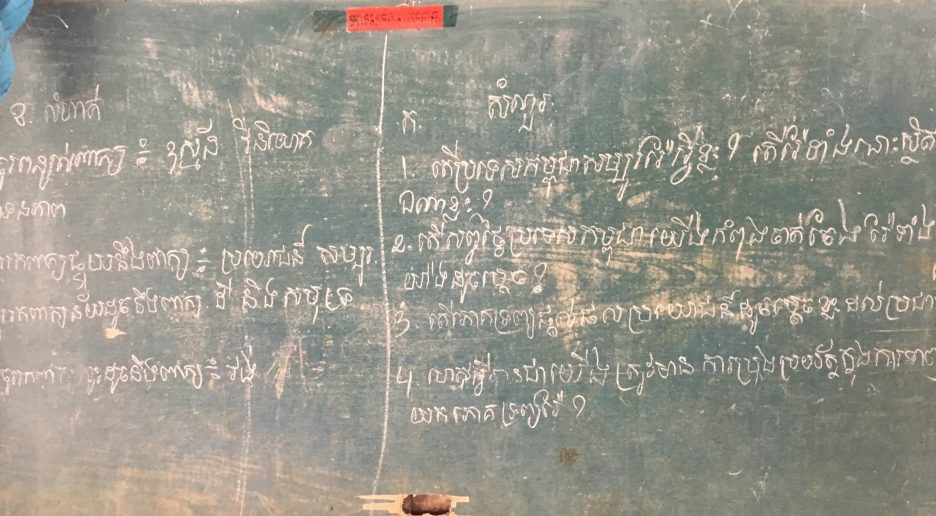 ខ. លំហាត់
ចូរពន្យល់ពាក្យ ៖ វិនិយោគ
រកពាក្យផ្ទុយនឹងពាក្យ ៖ ប្រយោជន៍ សម្បូរ
រកពាក្យន័យដូចនឹងពាក្យ ដី និង សមុទ្រ
ចូររកពាក្យ ដូចនឹងពាក្យ ៖
ក. សំណួរ
1. តើប្រទេសកម្ពុជាសម្បូររ៉ែអ្វីខ្លះ ? តើរ៉ែទាំងនោះស្ថិត
ឯណាខ្លះ ?
2. តើសព្វថ្ងៃប្រទេសកម្ពុជាយើងកំពុងចាត់ចែង រ៉ែទាំង
យ៉ាងដូចម្តេច ?
3. តើភោគទ្រព្យផ្តល់ផលប្រយោជន៍ដូចម្តេចខ្លះ ដល់ប្រជា
4. ហេតុអ្វីបានជាយើង ត្រូវមាន ការប្រុងប្រយ័ត្នក្នុងការ
យកភោគទ្រព្យរ៉ែ ?